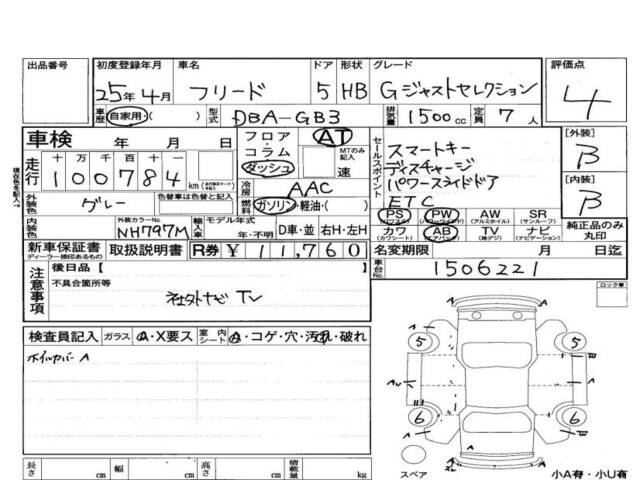 出品番号
初度登録年月 車名 ドア 形状 グレード 評価点
25年4月 フリード 5 HB Gジャストセレクション 4
車歴 自家用・( ) 型式 DBA-GB3 排気量 1500cc 定員 7人
車検 年 月 日
フロア・コラム・ダッシュ AT MTのみ記入 速
セールスポイント
スマートキー
ディスチャージ
パワースライドドア
ETC
[外装] B
[内装] B
走行 十 万 千 百 十 一
100784 km
冷房 AAC
現在色を記入→
外装色 グレー 色替車は色替と記入 燃料 ガソリン・軽油・( )
PS PW AW SR
(パワステ) (パワーウィンド) (アルミホイル) (サンルーフ)
カワ AB TV ナビ
(カワシート) (エアバック) (地デジ) (ナビゲーション)
純正品のみ丸印
内装色 外装カラーNo. NH797M 輸入車 モデル年式 年・不明 D車・並 右H・左H
新車保証書 取扱説明書 R券 ¥11,760
ディーラー捺印あるもの
名変期限 月 日迄
車台No. 1506221
注意事項
後日品【 】
不具合箇所等
社外ナビ TV
ロック車
検査員記入 ガラス A・X要ス 室内シート A・コゲ・穴・汚れ・破れ
ホイルカバー A
5 5
6 6
スペア
小A有・小U有
長さ cm 幅 cm 高さ cm 積載量 kg